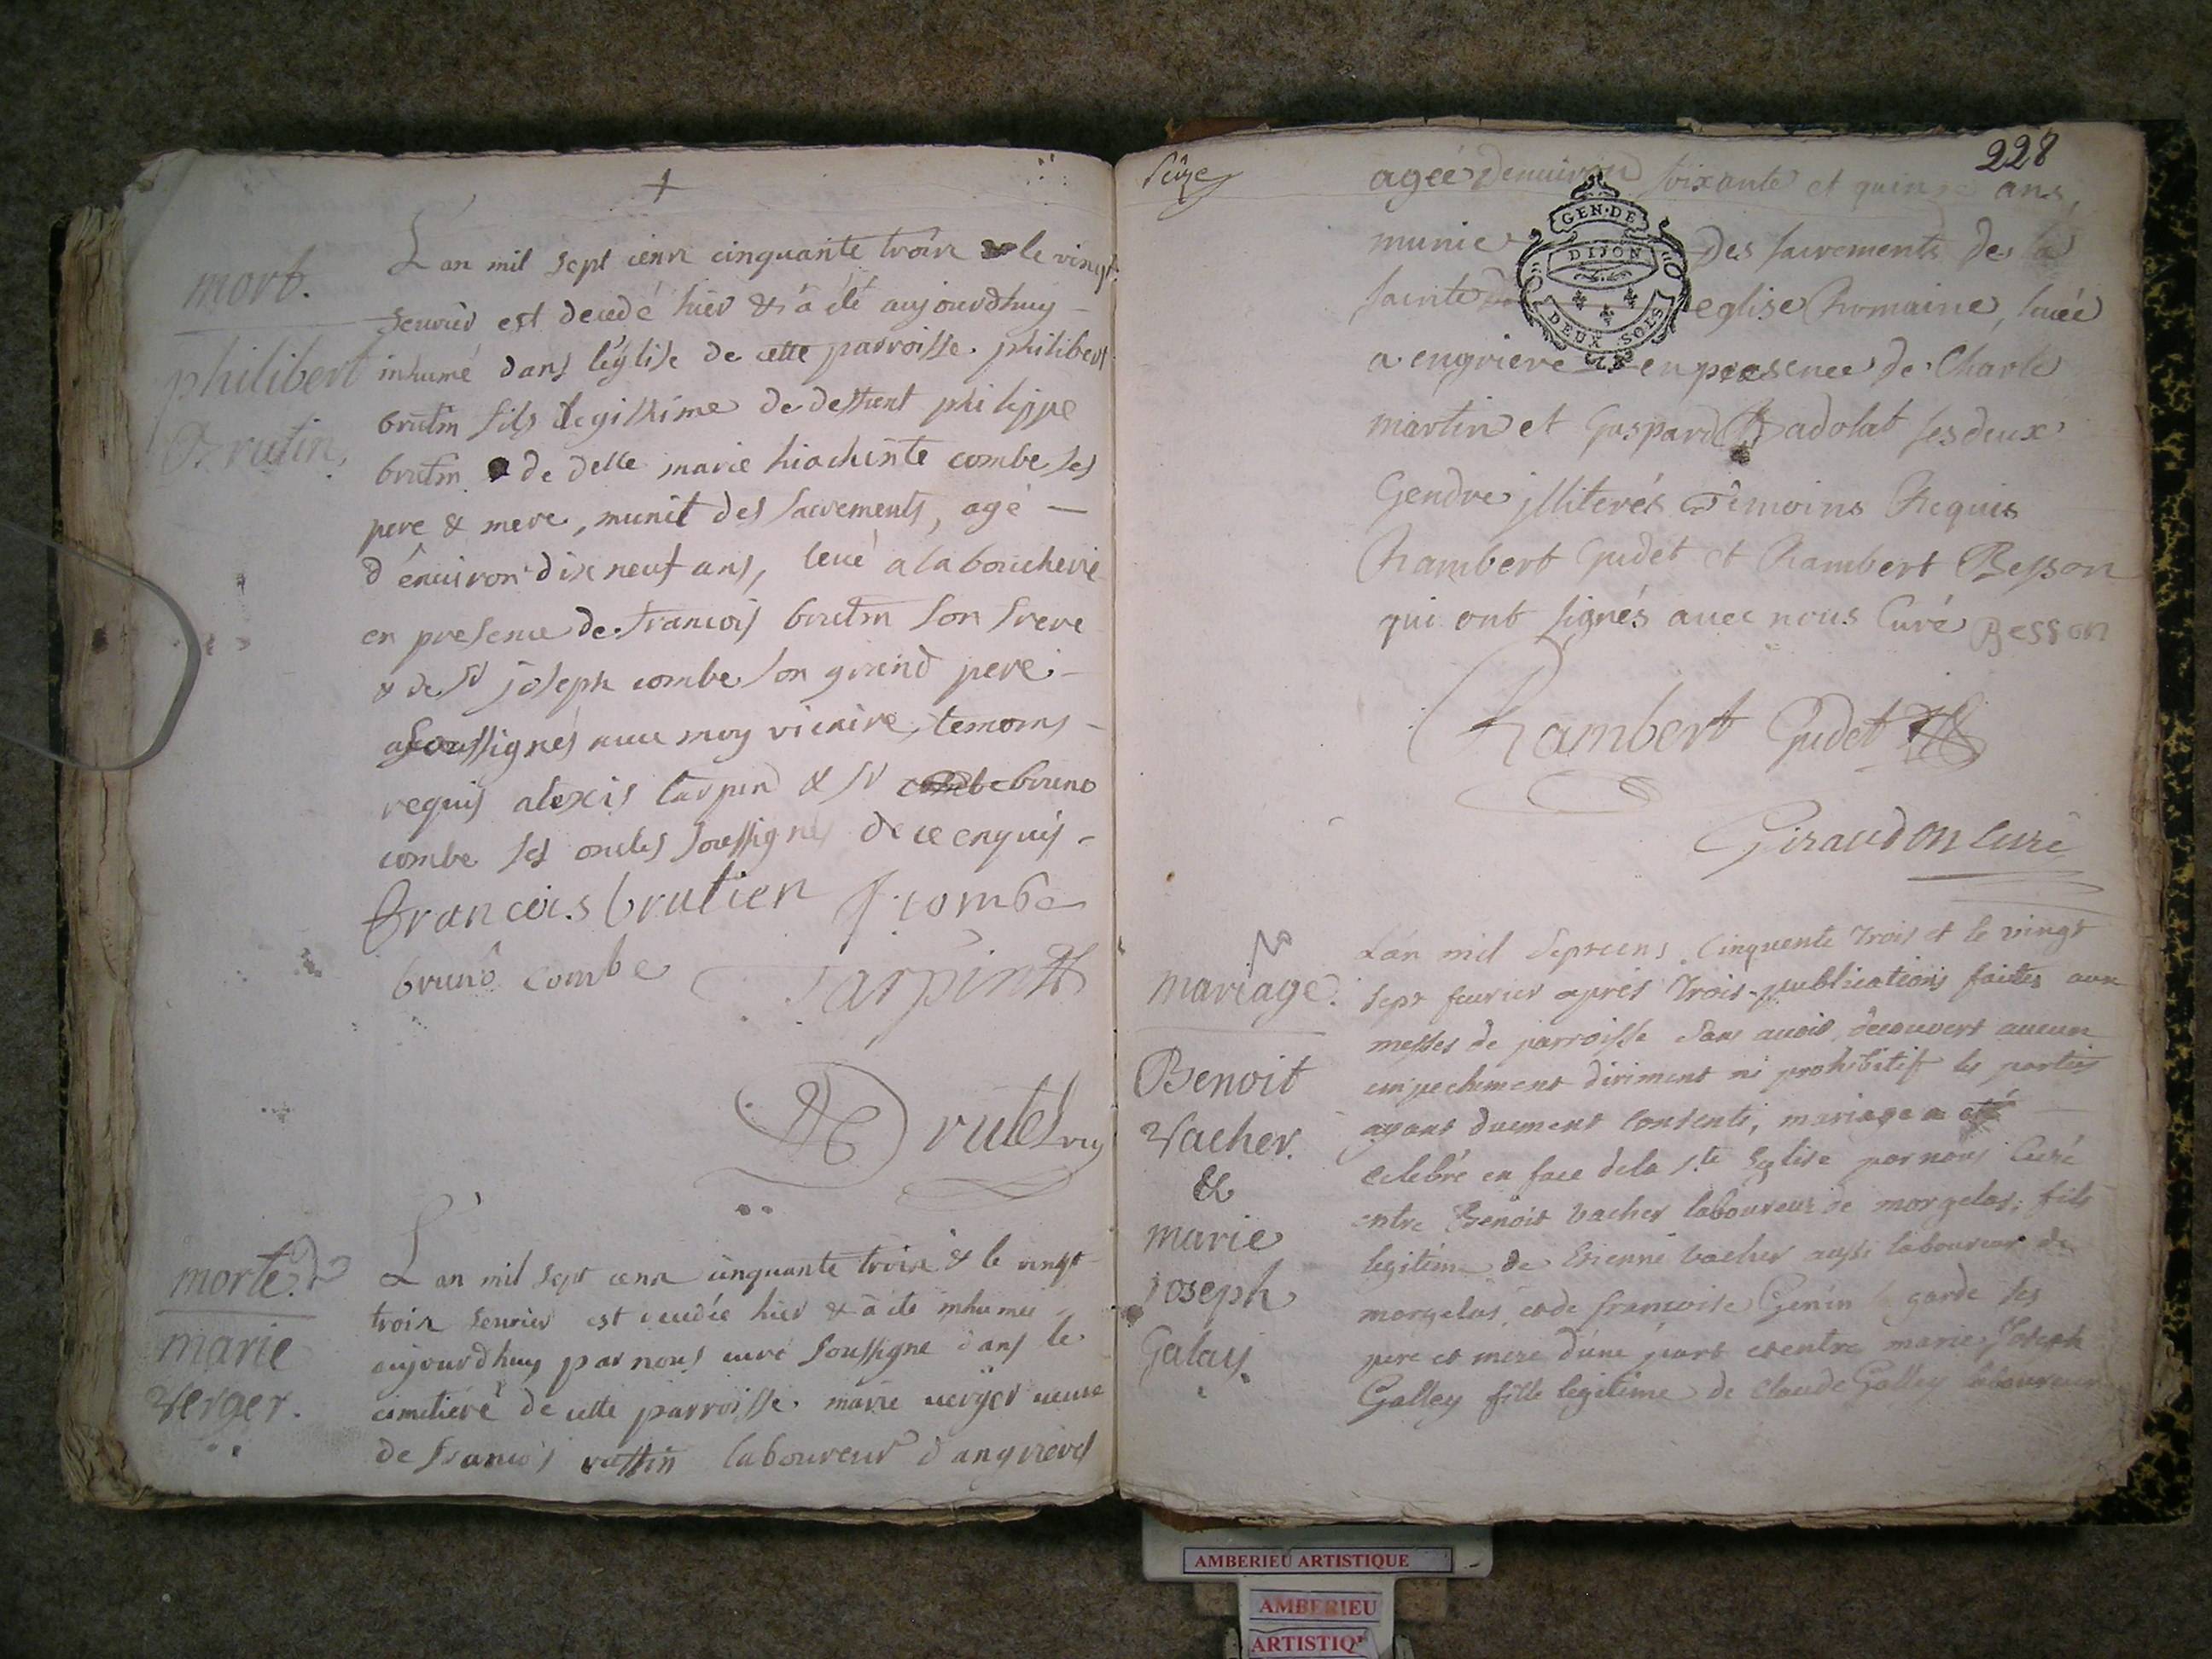 mort.
philibert
Brutin,
L'an mil sept cens cinquante trois le vingt
fevrier est decedé hier & a été aujourdhuy
inhumé dans l'église de cette parroisse philibert
brutin fils legitime de deffunt philippe
brutin & de delle marie hiachinte combe ses
pere & mere, munit des sacrements, agé
d'environ dix neuf ans, levé a la boucherie
en presence de francois brutin son frere
& de sr joseph combe son grand pere
soussignés avec moy vicaire, temoins
requis alexis tarpin & sr combe bruno
combe ses oncles soussignés de ce enquis
francois brutien J combe
bruno combe tarpin
Brutel
morte.
marie
verger.
L'an mil sept cens cinquante trois & le vingt
trois fevrier est decedée hier & a été inhumée
aujourdhuy par nous curé soussigné dans le
cimetiere de cette parroisse marie verger veuve
de francois laboureur d'angrieres
Seize
228
agée denviron soixante et quinze ans,
munie des sacrements de la
sainte eglise Romaine, levée
a engriere en presence de Charle
martin et Gaspard Badolat ses deux
Gendre jlliterés Temoins Requis
Rambert Gudet et Rambert Besson
qui ont signés avec nous Curé Besson
GEN·DE
DIJON
DEUX SOLS
Rambert Gudet
Giraudon curé
mariage.
Benoit
Vacher.
&
marie
joseph
Galay.
L'an mil sept cens cinquente trois et le vingt
sept fevrier apres trois publications faittes aux
messes de parroisse sans avoir decouvert aucun
empechement diriment ni prohibitif les parties
ayant duement consenti, mariage a été
celebré en face de la ste Eglise par nous Curé
entre Benoit vacher laboureur de morgelas, fils
legitime de Etienne vacher aussi laboureur de
morgelas et de francoise Genin garde ses
pere et mere d'une part et entre marie Joseph
Galley fille legitime de Claude Galley laboureur
AMBERIEU ARTISTIQUE
AMBERIEU
ARTISTIQ